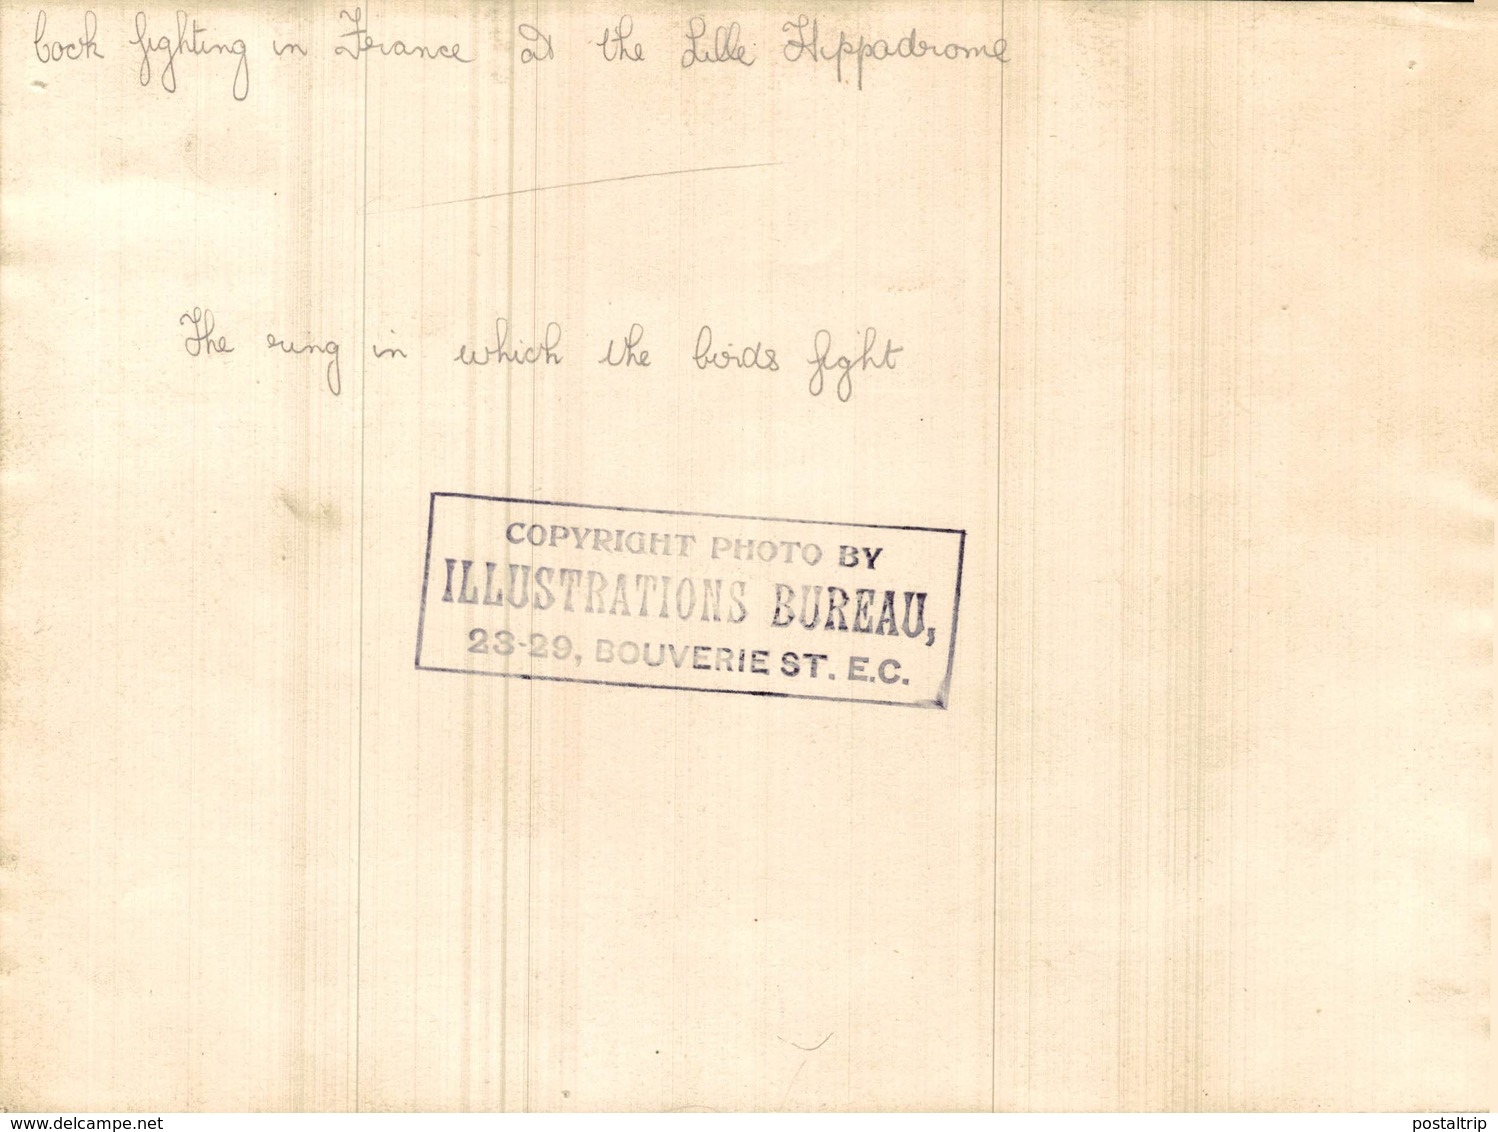 Cock fighting in France at the Lille Hippadrome
The ring in which the birds fight
COPYRIGHT PHOTO BY
ILLUSTRATIONS BUREAU,
23-29, BOUVERIE ST. E.C.
www.delcampe.net
postaltrip